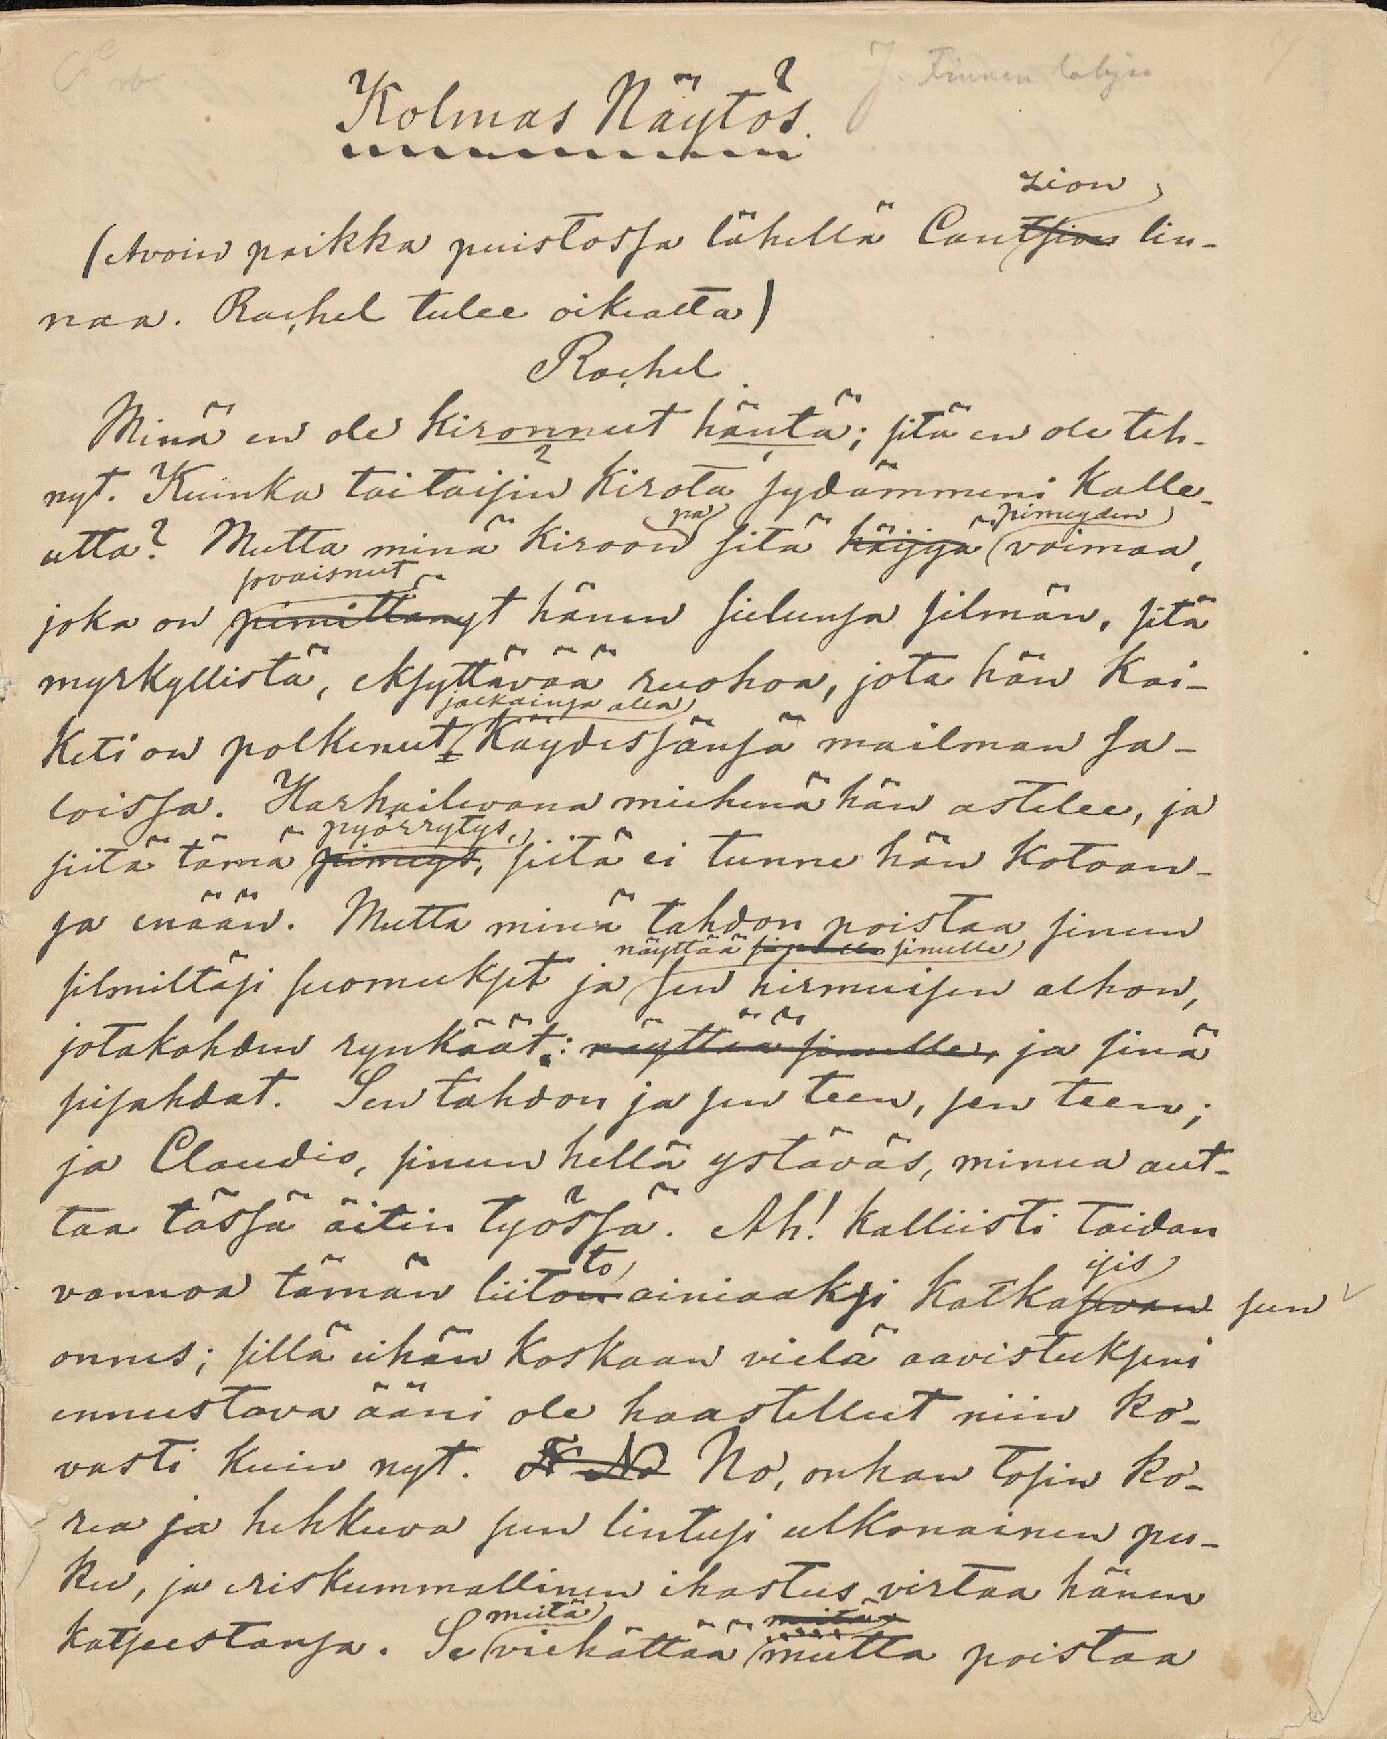 Kolmas Näytös.
zion
(Avoin paikka puistossa lähellä Cantsion lin-
naa. Rachel tulee oikealta)
Rachel.
Minä en ole kironnut häntä; sitä en ole teh-
nyt. Kuinka taitaisin kirota sydämmeni kalle-
utta? Mutta minä kiroon sitä häijyä voimaa,
pa pimeyden
sovaisnut
joka on pimittänyt hänen sielunsa silmän, sitä
myrkyllistä, eksyttävää ruohoa, jota hän kai-
jalkainsa alla
keti on polkenut käydessänsä mailman sa-
loissa. Harhailevana miehenä hän astelee, ja
pyörrytys,
siitä tämä pimeys, siitä ei tunne hän kotoan-
sa enään. Mutta minä tahdon poistaa sinun
näyttää sinulle sinulle
silmiltäsi suomukset ja sen hirmuisen alhon,
jotakohden rynkäät: näyttää sinulle, ja sinä
pisahdat. Sen tahdon ja sen teen, sen teen;
ja Claudio, sinun hellä ystäväs, minua aut-
taa tässä äitin työssä. Ah! kalliisti taidan
to
ijis
vannoa tämän liiton ainiaaksi katkasevan sun
onnes; sillä eihän koskaan vielä aavistukseni
ennustava ääni ole haastellut niin ko-
vasti kuin nyt. No No, onhan tosin ko-
rea ja hehkuva sun lintusi ulkonainen pu-
ku, ja eriskummallinen ihastus virtaa hänen
meitä mitään
katseestansa. Se viehättää mutta poistaa